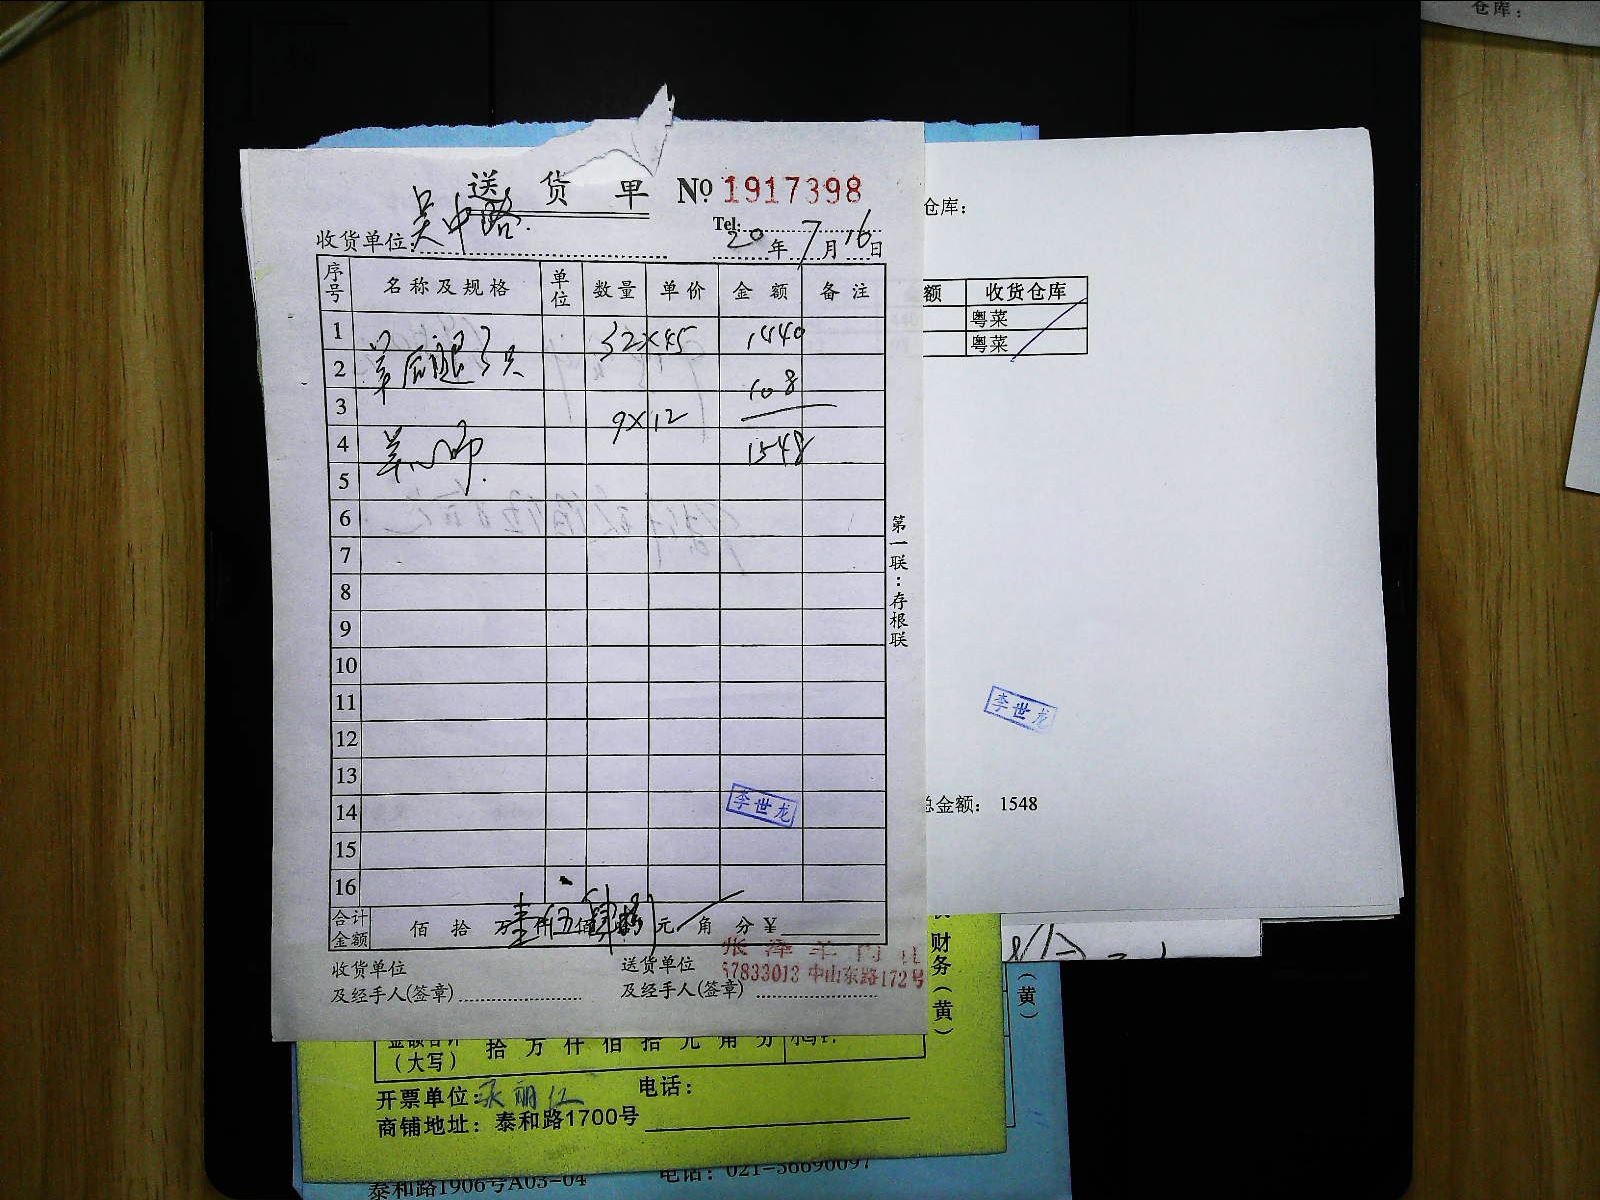 仓库：
送 货 单 №1917398
Tel:
收货单位：吴中路 20年7月16日
序号 名称及规格 单位 数量 单价 金额 备注
1 羊后腿3只 32×45 1440
2
3 9×12 108
4 羊心 1548
5
6
7
8
9
10
11
12
13
14
15
16
李世龙
合计金额 佰 拾 万 壹仟伍佰肆拾 元 角 分 ¥
收货单位
及经手人(签章)
送货单位
及经手人(签章)
57833013 中山东路172号
第一联：存根联
仓库：
额 收货仓库
粤菜
粤菜
李世龙
总金额： 1548
财务（黄）
（黄）
金额合计
（大写） 拾 万 仟 佰 拾 元 角 分
开票单位： 电话：
商铺地址：泰和路1700号
泰和路1906号A03-04 电话：021-56690097